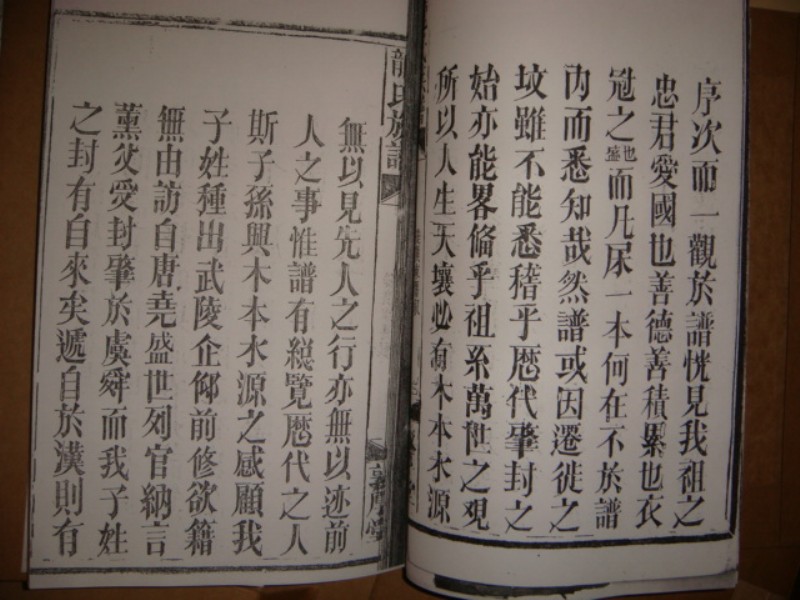 序次而一觀於譜恍見我祖之
忠君愛國也善德善積累也衣
冠之盛也而凡尿一本何在不於譜
內而悉知哉然譜或因遷徙之
坟雖不能悉稽乎歴代肇封之
始亦能畧俻乎祖系萬世之覌
所以人生天壤必有木本水源
龍氏族譜
敦厚堂
無以見先人之行亦無以迹前
人之事惟譜有縂覽歴代之人
斯子孫興木本水源之感顧我
子姓種出武陵企仰前修欲籍
無由訪自唐堯盛世列官納言
薰父受封肇於虞舜而我子姓
之封有自來矣遞自於漢則有